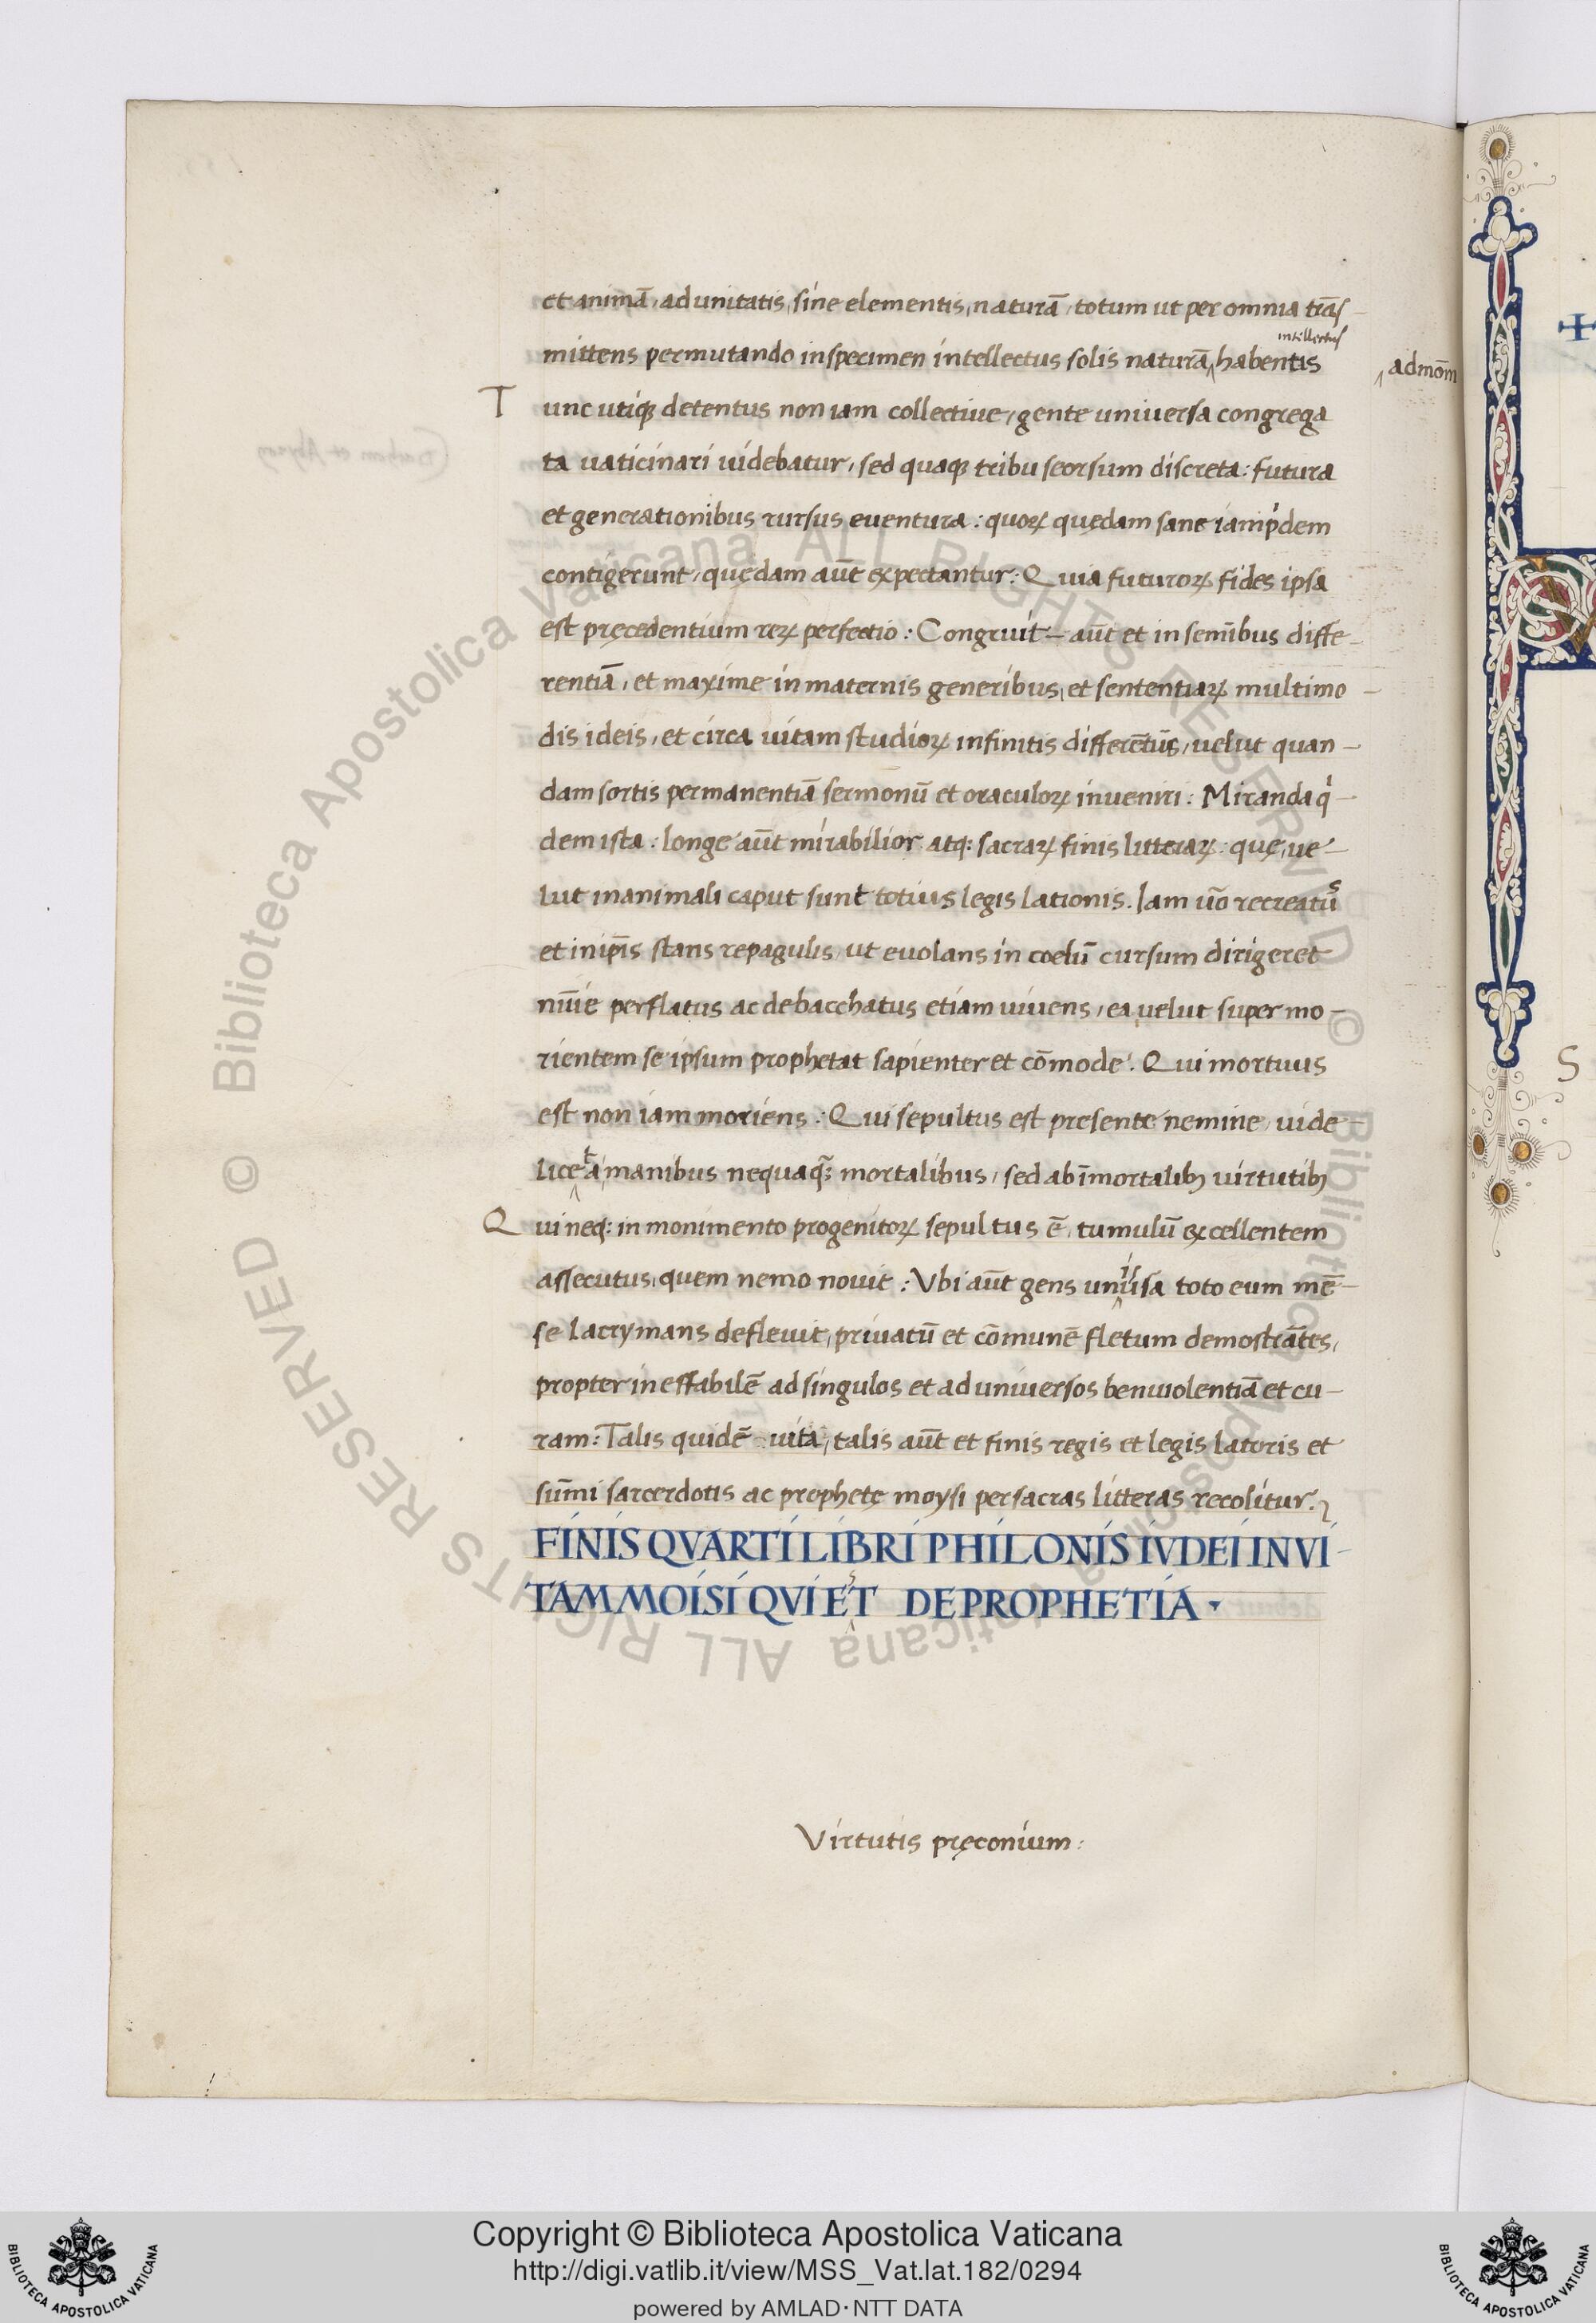 et animā, ad unitatis, sine elementis, naturā, totum ut per omnia trās
intellectus
mittens permutando in specimen intellectus solis naturā habentis
admom̄
T unc utiqꝫ detentus non iam collectiue, gente uniuersa congrega
ta uaticinari uidebatur, sed quaqꝫ tribu seorsum discreta: futura
et generationibus rursus euentura: quoꝝ quędam sane iampͥdem
contigerunt, quędam aūt expectantur: Quia futuroꝝ fides ipsa
est pręcedentium reꝝ perfectio: Congruit aūt et in semībus diffe-
rentiā, et maxime in maternis generibus, et sententiaꝝ multimo-
dis ideis, et circa uitam studioꝝ infinitis differētiis, uelut quan-
dam sortis permanentiā sermonū et oraculoꝝ inueniri: Miranda qͥ-
dem ista: longe aūt mirabilior atq: sacraꝝ finis litteraꝝ: quę, ue-
lut in animali caput sunt totius legis lationis. Iam uō recreatūs
et in ip̄is stans repagulis, ut euolans in coelū cursum dirigeret
perflatus ac debacchatus etiam uiuens, ea uelut super mo-
rientem se ipsum prophetat sapienter et cōmode: Qui mortuus
est non iam moriens: Qui sepultus est presente nemine, uide-
licet a manibus nequaq̄ꝫ mortalibus, sed ab īmortalibꝫ uirtutibꝫ
Q ui neq: in monimento progenitoꝝ sepultus ē, tumulū excellentem
assecutus, quem nemo nouit: Vbi aūt gens uniūsa toto eum mē-
se lacrymans defleuit, priuatū et cōmunē fletum demostrātes,
propter ineffabilē ad singulos et ad uniuersos beniuolentiā et cu-
ram: Talis quidē uita, talis aūt et finis regis et legis latoris et
sūmi sarcerdotis ac prophetę moysi per sacras litteras recolitur.
FINIS QVARTI LIBRI PHILONIS IVDEI IN VI-
TAM MOISI QVI EST DE PROPHETIA
Virtutis pręconium:
S
Copyright © Biblioteca Apostolica Vaticana
http://digi.vatlib.it/view/MSS_Vat.lat.182/0294
powered by AMLAD·NTT DATA
BIBLIOTECA APOSTOLICA VATICANA
BIBLIOTECA APOSTOLICA VATICANA
© Biblioteca Apostolica Vaticana ALL RIGHTS RESERVED © Biblioteca Apostolica Vaticana ALL RIGHTS RESERVED